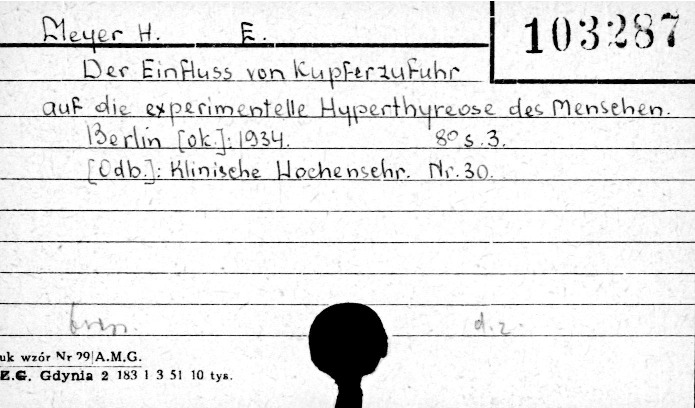 Meyer H. E. 103287
Der Einfluss von Kupferzufuhr
auf die experimentelle Hyperthyreose des Menschen.
Berlin [ok.]: 1934. 8º s. 3.
[Odb.]: Klinische Wochenschr. Nr. 30.
d. z.
uk wzór Nr 29|A.M.G.
Z.G. Gdynia 2 183 1 3 51 10 tys.